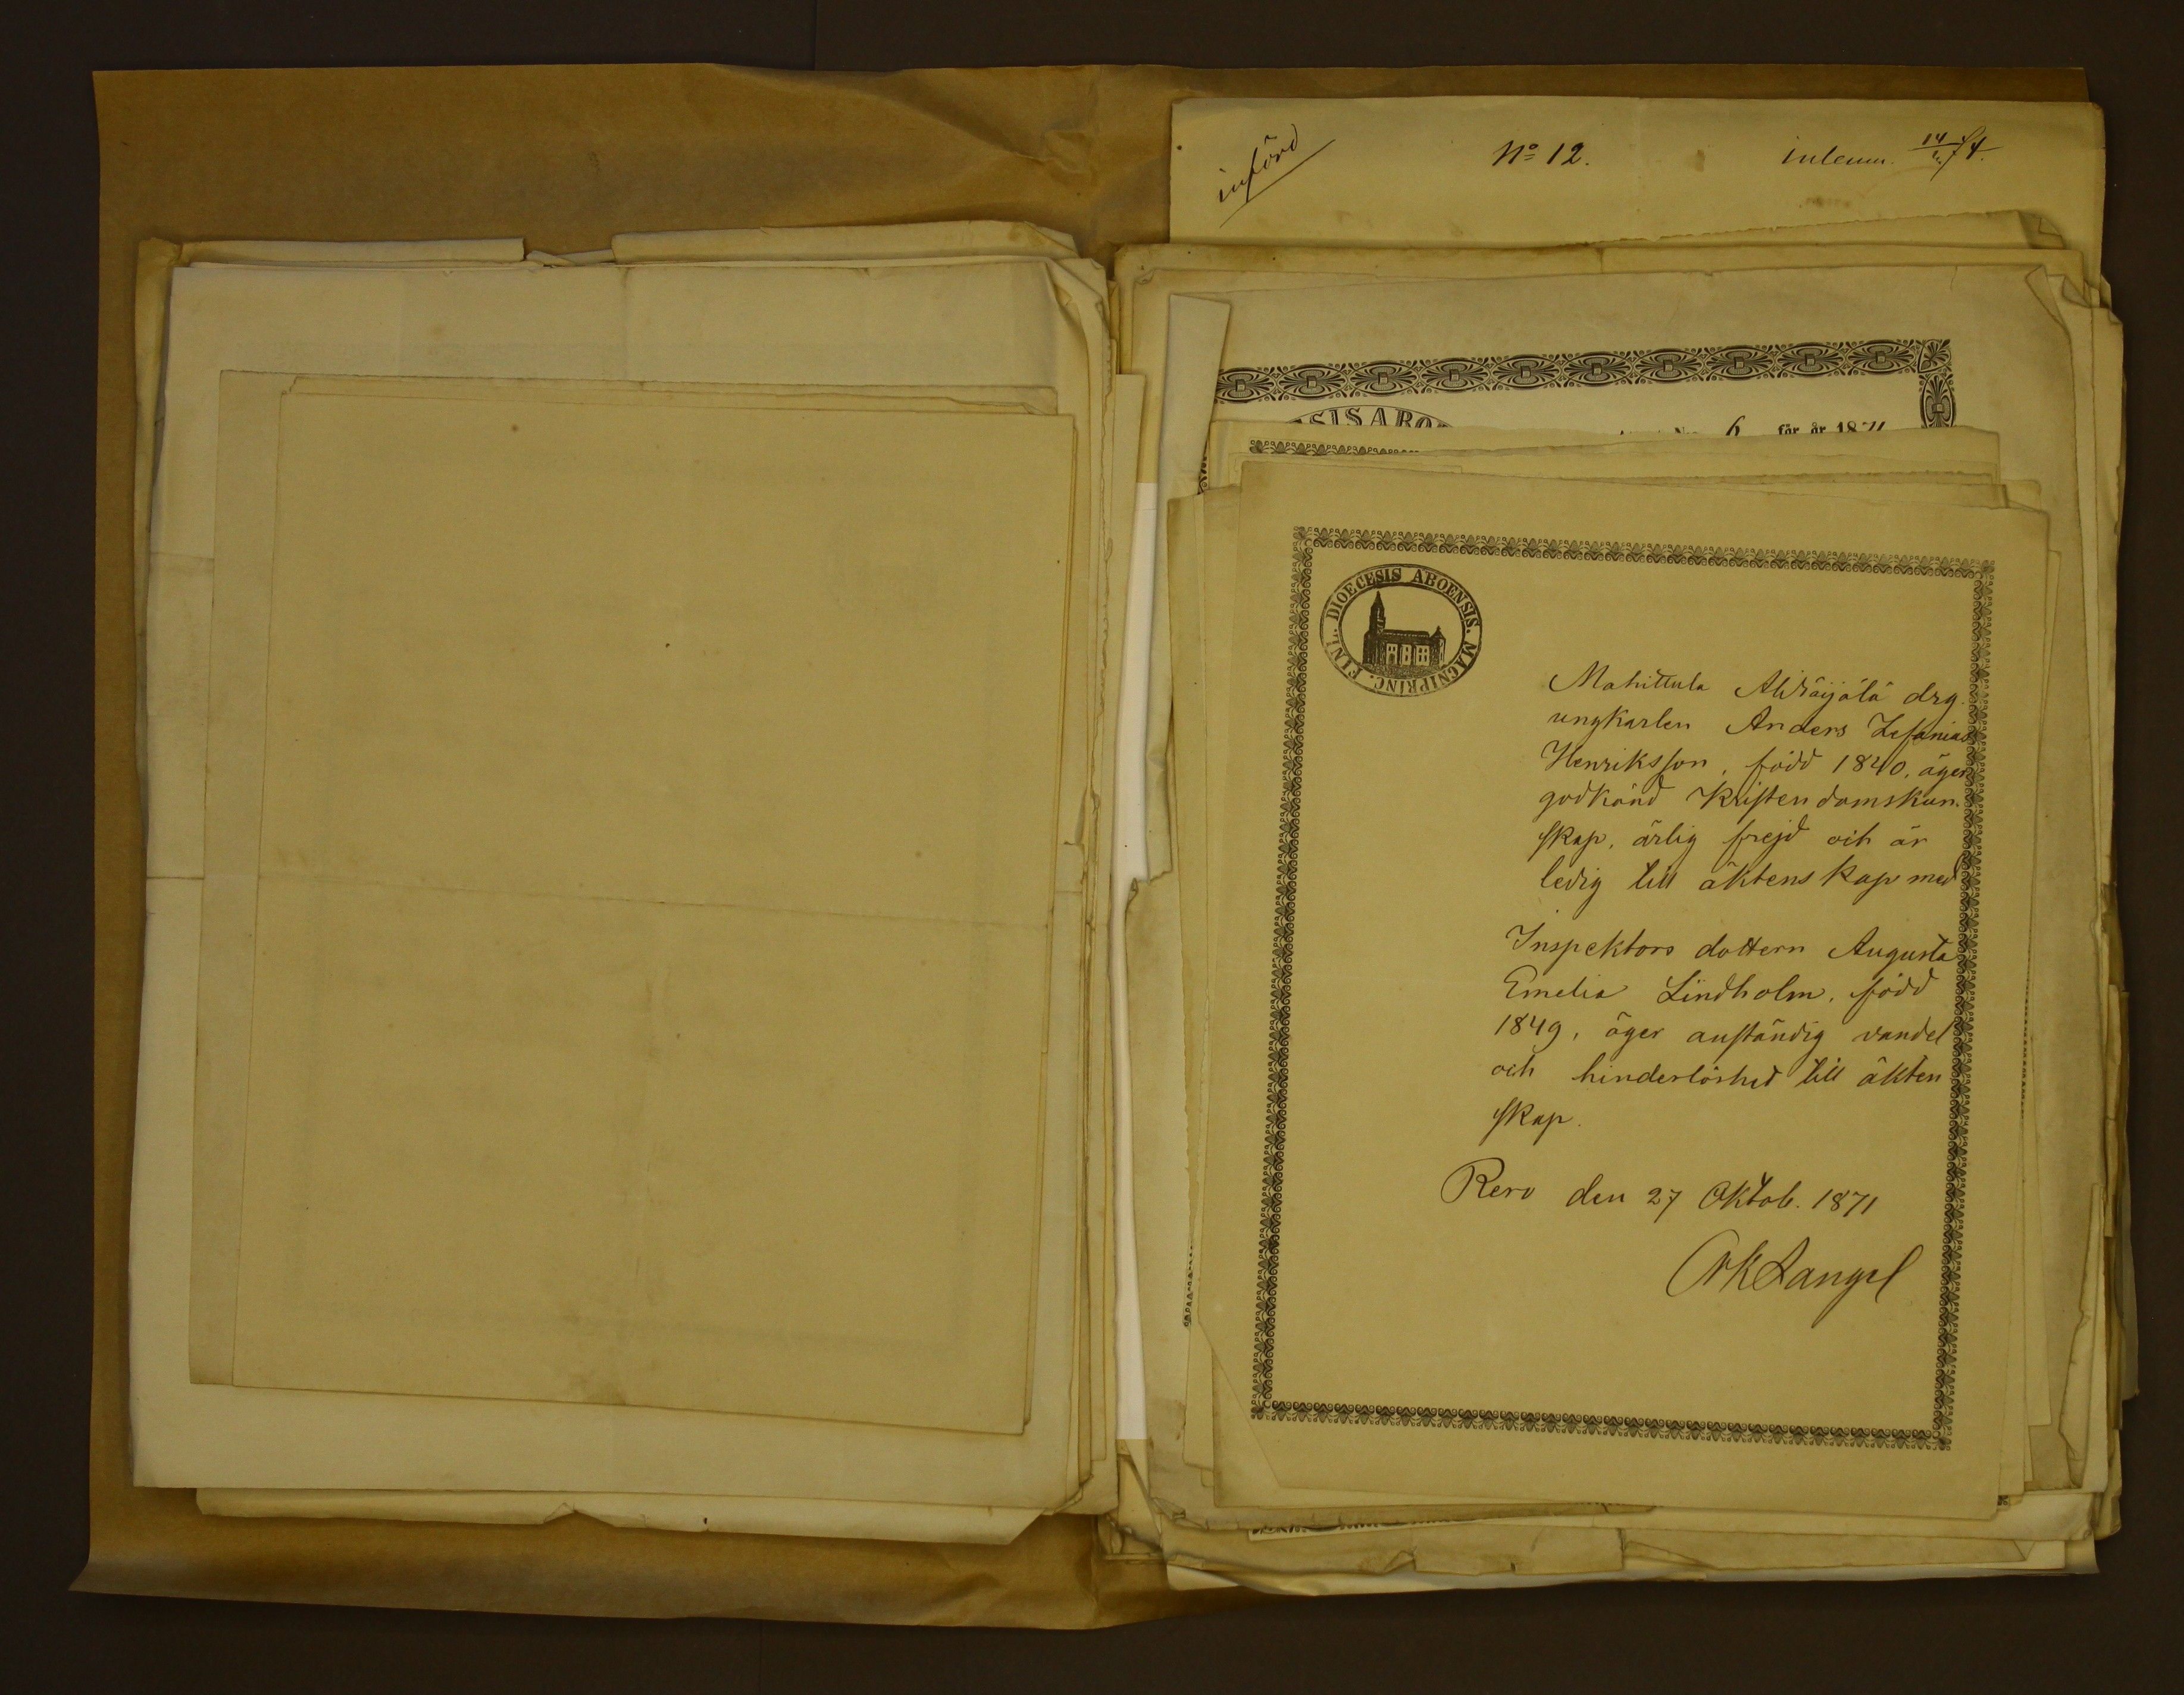 införd
No 12.
inlemn. 14/ 74.
SIS ABO
No 6 för år 1871
FINL. DIOECESIS ABOENSIS. MAGNI PRINC.
Mahittula drg.
ungkarlen Anders Zefanias
Henriksson, född 1840, äger
godkänd kristendomskun-
skap, ärlig frejd och är
ledig till äktenskap med
Inspektors dottern Augusta
Emelia Lindholm, född
1849, äger anständig vandel
och hinderlöshet till äkten
skap.
Reso den 27 Oktob. 1871
Langel